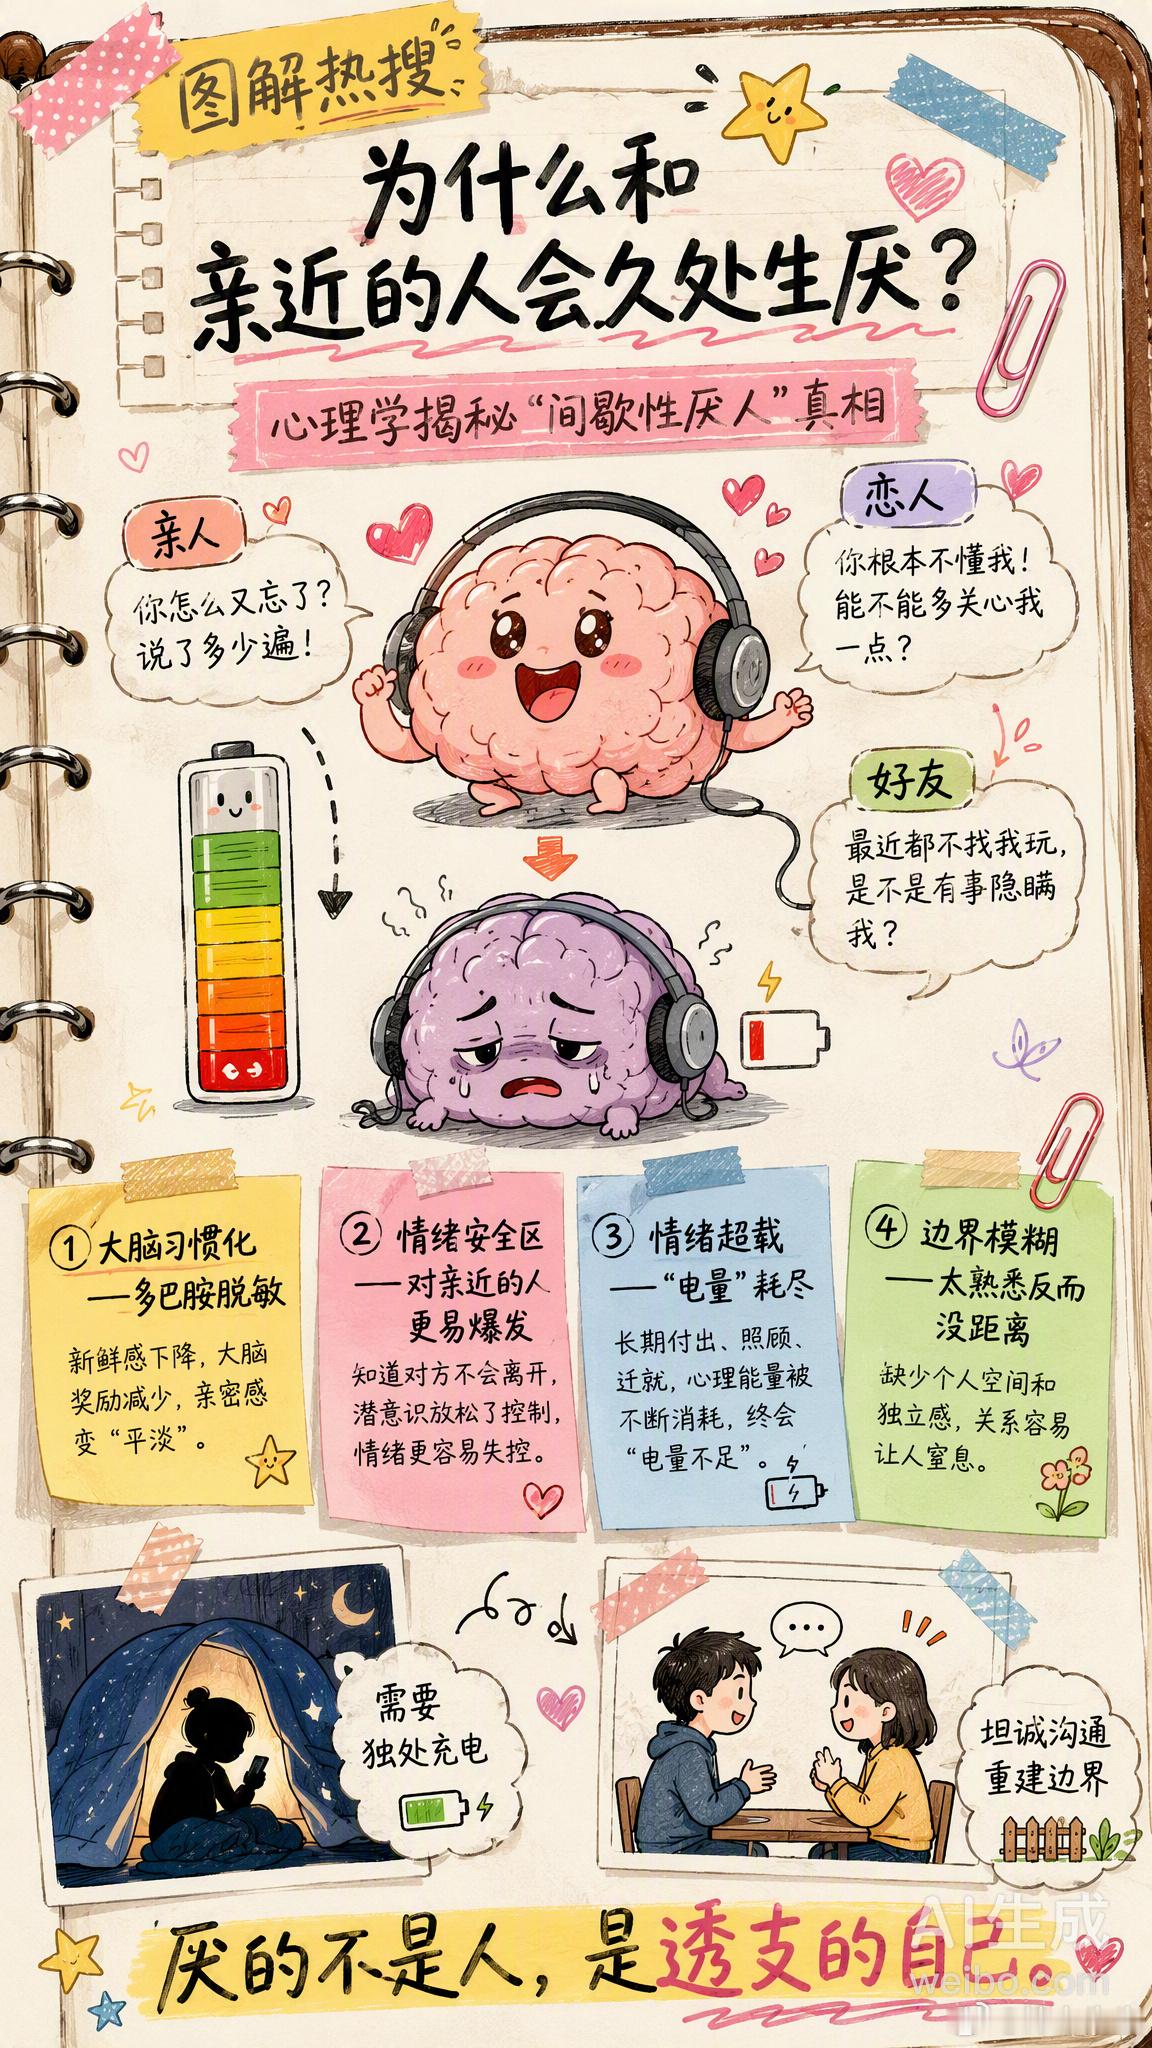 图解热搜
为什么和
亲近的人会久处生厌？
心理学揭秘“间歇性厌人”真相
亲人
你怎么又忘了？
说了多少遍！
恋人
你根本不懂我！
能不能多关心我
一点？
好友
最近都不找我玩，
是不是有事隐瞒
我？
①大脑习惯化
——多巴胺脱敏
新鲜感下降，大脑
奖励减少，亲密感
变“平淡”。
②情绪安全区
——对亲近的人
更易爆发
知道对方不会离开，
潜意识放松了控制，
情绪更容易失控。
③情绪超载
——“电量”耗尽
长期付出、照顾、
迁就，心理能量被
不断消耗，终会
“电量不足”。
④边界模糊
——太熟悉反而
没距离
缺少个人空间和
独立感，关系容易
让人窒息。
需要
独处充电
坦诚沟通
重建边界
厌的不是人，是透支的自己。
AI生成
weibo.com